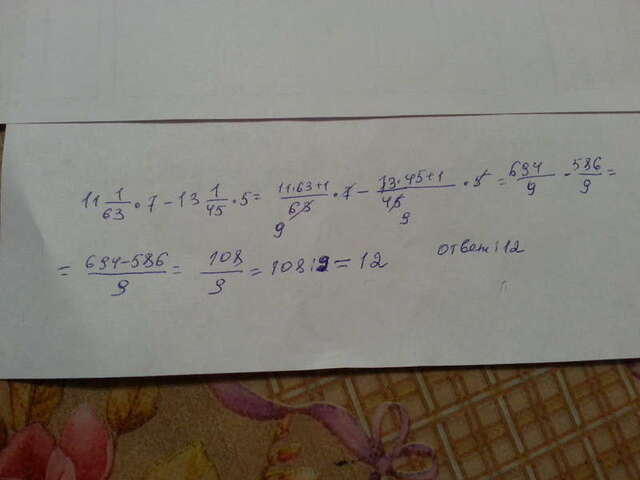 11 1/63 • 7 - 13 1/45 • 5 = 11•63+1/63 • 7 - 13•45+1/45 • 5 = 694/9 - 586/9 =
9 9
= 694-586/9 = 108/9 = 108:9 = 12 ответ: 12